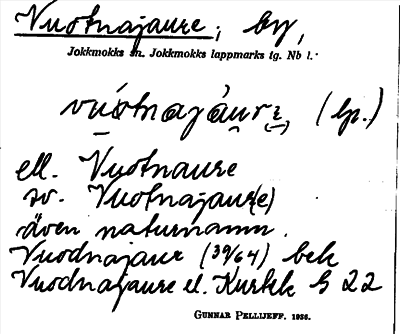 Vuotnajaure; by,
Jokkmokks sn. Jokkmokks lappmarks tg. Nb l.
vuȯtnajȧurε (lp.)
ell. Vuotnaure
sv. Vuotnajaur(e)
även naturnamn.
Vuodnajaur (39/64) bek
Vuodnajaure el. Kurkk G 22
GUNNAR PELLIJEFF. 1956.